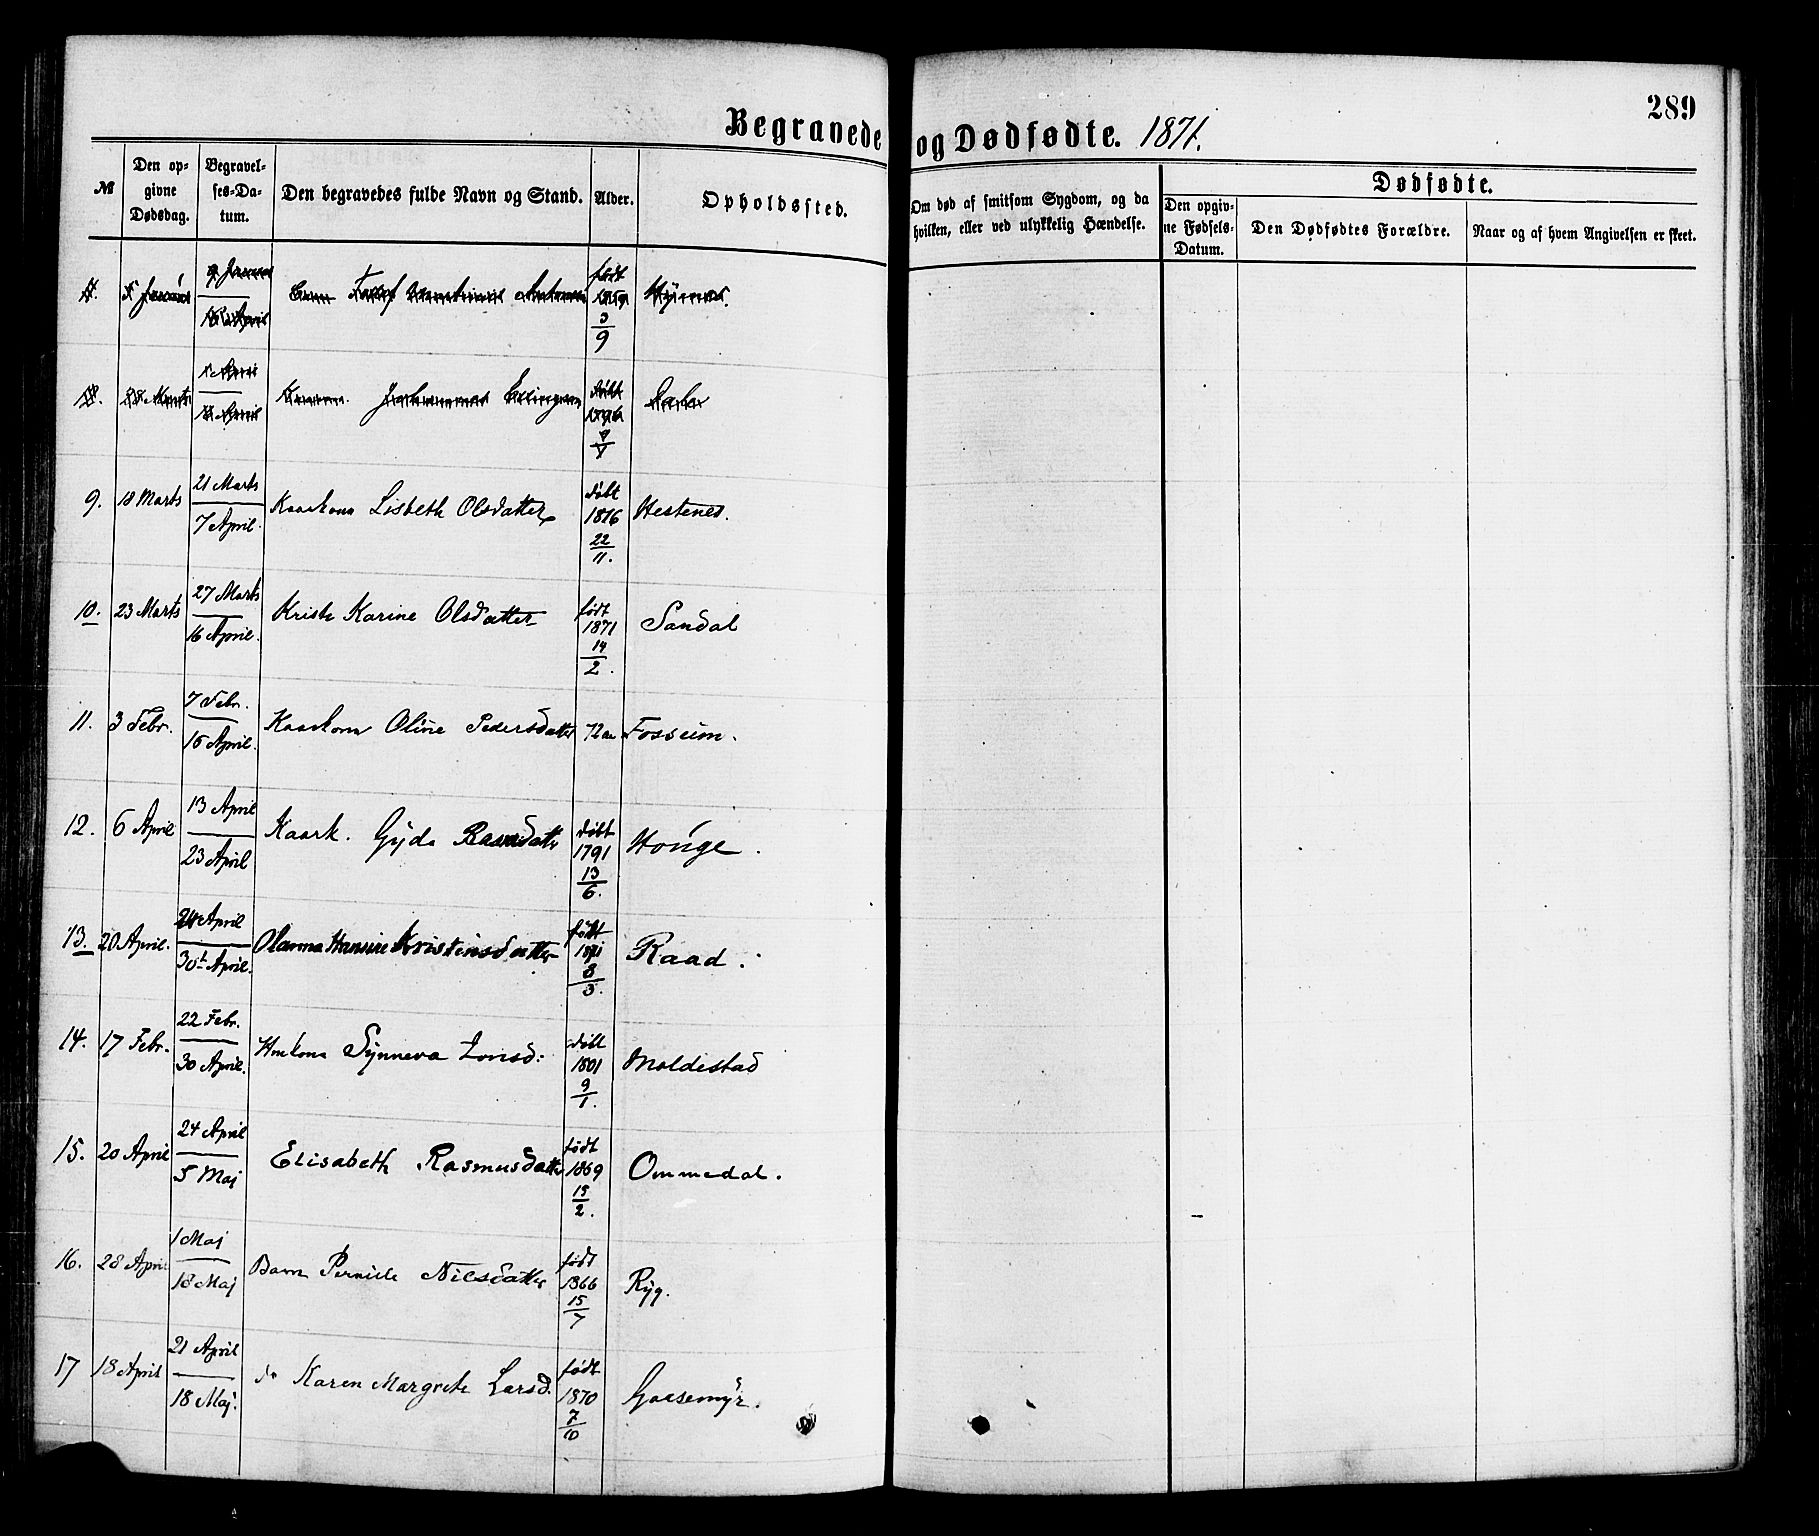 Begravede og Dødfødte. 1871.
289
№
Den op-
givne
Dødsdag.
Begravel-
ses-Da-
tum.
Den begravedes fulde Navn og Stand.
Alder.
Opholdssted.
Om død af smitsom Sygdom, og da
hvilken, eller ved ulykkelig Hændelse.
Dødfødte.
Den opgiv-
ne Fødsels-
Datum.
Den Dødfødtes Forældre.
Naar og af hvem Angivelsen er skeet.
født
3
9
døbt
9. 18 Marts 21 Marts Kaarkone Lisbeth Olsdatter døbt Hestenes.
7 April. 1816
22
11.
10. 23 Marts 27 Marts Kristi Karine Olsdatter født Sandal
16 April. 1871
14
2.
11. 3 Febr. 7 Febr. Kaarkone Oline Pedersdatter 72 Fossum.
16 April.
12. 6 April 13 April Kaark. Gjyda døbt Honge.
23 April 1791
13
6.
13. 20 April. 24 April Kristensdatter født Raad.
30t April. 1871
8
3.
14. 17 Febr. 22 Febr. Synneva Jonsd: døbt Moldestad
30 April. 1801
9
1.
15. 20 April 24 April Elisabeth Rasmusdatter født Ommedal.
5 Maj 1869
15
2.
16. 28 April 1 Maj Barn Pernille Nilsdatter født Ryg.
18 Maj 1866
15
7
17 18 April 21 April do Karen Margrete Larsd. født Gaasemyr.
18 Maj. 1870
7
10